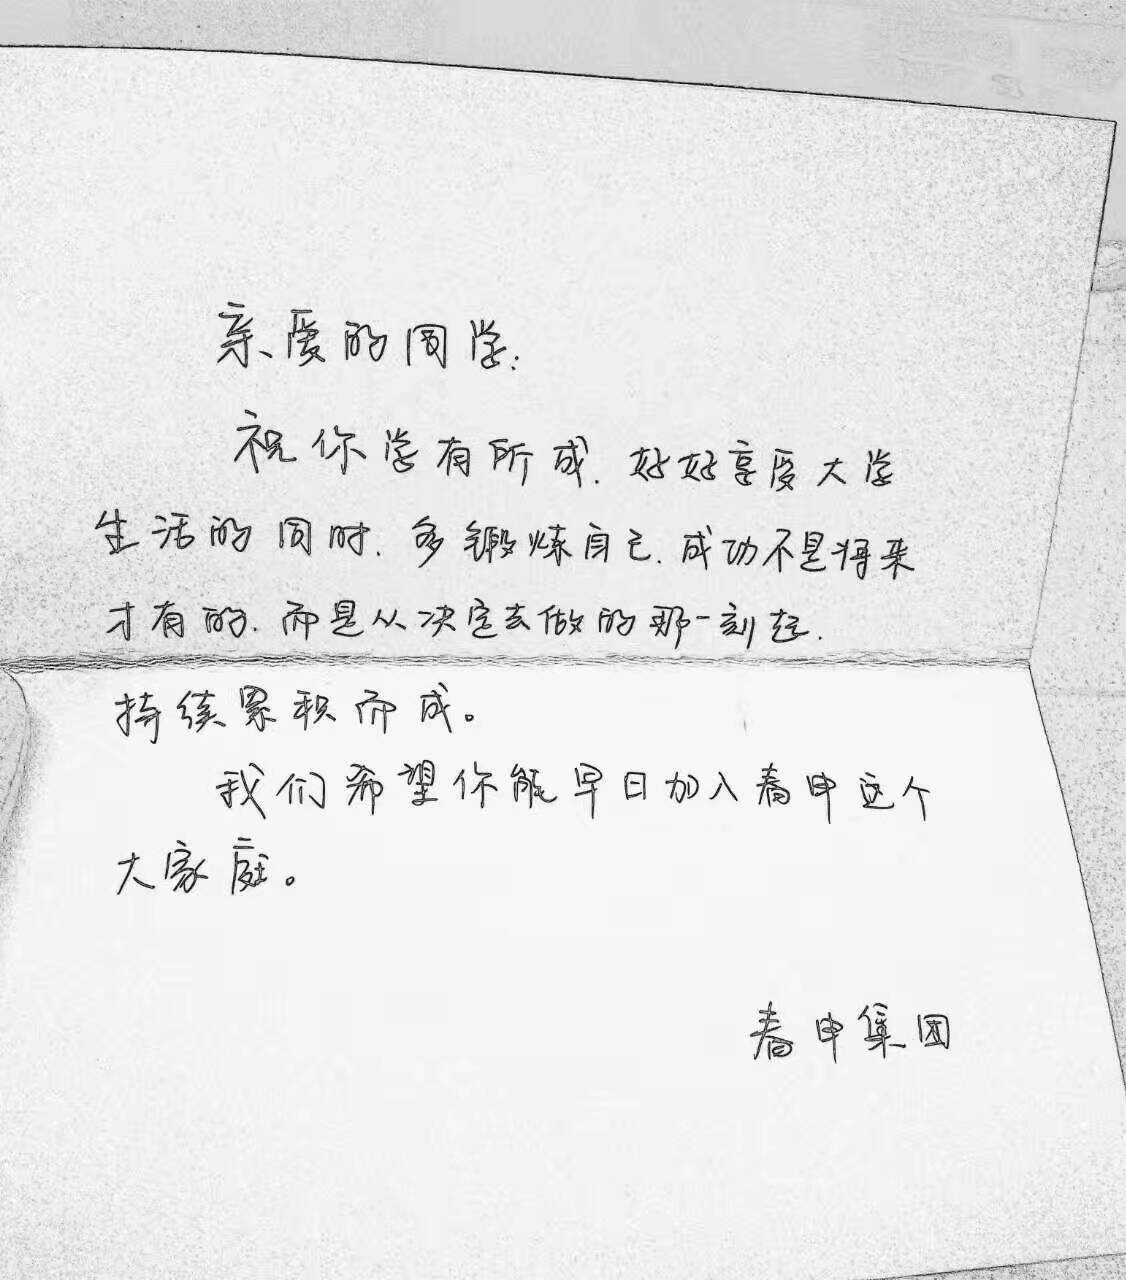 亲爱的同学:
祝你学有所成.好好享受大学
生活的同时.多锻炼自己.成功不是将来
才有的.而是从决定去做的那一刻起.
持续累积而成。
我们希望你能早日加入春申这个
大家庭。
春申集团